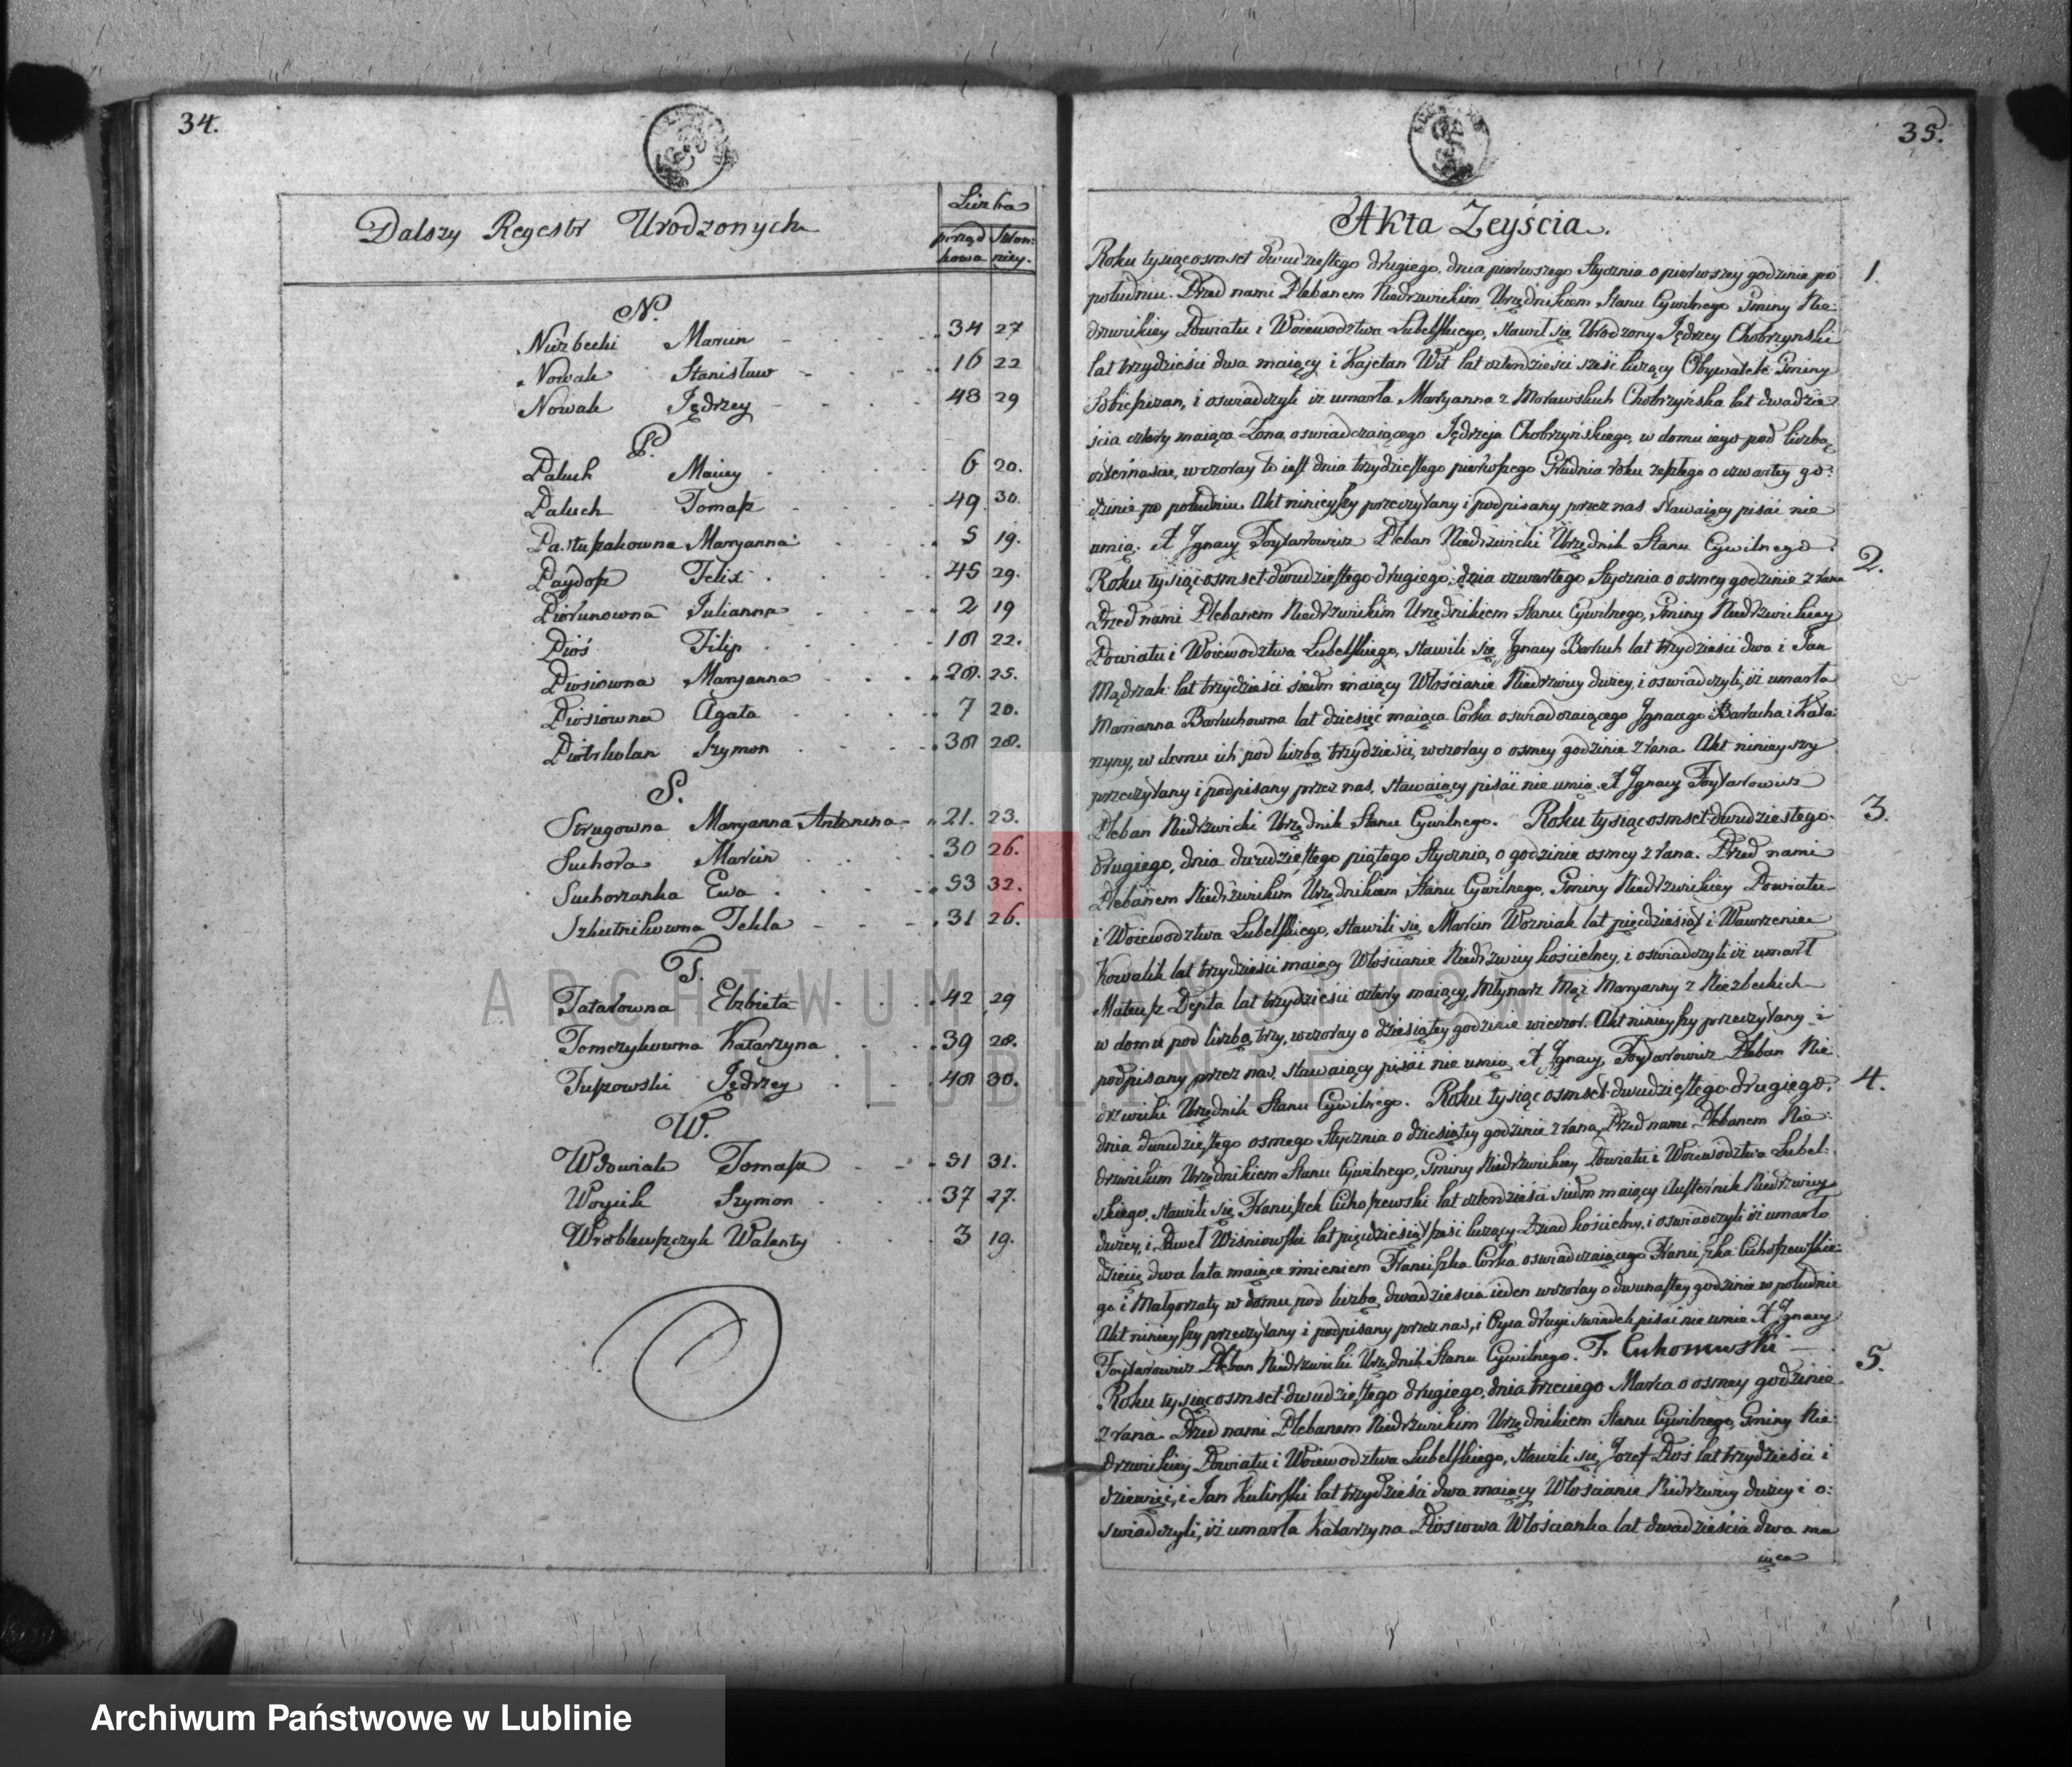 34.
Dalszy Regestr Urodzonych
Liczba
porząd kowa
Stron: nicy.
N.
Niezbecki Marcin 34 27
Nowak Stanisław 16 22
Nowak Jędrzey 48 29
P.
Paluch Maciey 6 20.
Paluch Tomasz 49. 30.
Pastuszakowna Maryanna 5 19.
Paydosz Felix 45 29.
Piorunowna Julianna 2 19
Pioś Filip 18 22.
Piosiowna Maryanna 28. 25.
Piosiowna Agata 7 20.
Piotrkolan Szymon 38 28.
S.
Strugowna Maryanna Antonina 21. 23.
Suchora Marcin 30 26.
Suchorzanka Ewa 53 32.
Szkutnikowna Tekla 31 26.
T.
Tatarowna Elzbieta 42 29
Tomczykowna Katarzyna 39 28.
Tuszowski Jędrzey 48 30.
W.
Wdowiak Tomasz 51 31.
Woycik Szymon 37 27.
Wroblewszczyk Walenty 3 19.
35.
Akta Zeyścia.
1.
Roku tysiąc osmset dwudziestego drugiego, dnia pierwszego Stycznia o pierwszey godzinie po
południu. Przed nami Plebanem Niedrzwickim Urzędnikiem Stanu Cywilnego Gminy Nie:
drzwickiey Powiatu i Woiewodztwa Lubelskiego, stawił się Urodzony Jędrzey Chobrzyński
lat trzydzieści dwa maiący i Kajetan Wit lat czterdzieści sześć liczący Obywatele Gminy
Sobieszczan, i oswiadczyli iz umarła Maryanna z Morawskich Chobrzyńska lat dwadzie:
ścia cztery maiąca Zona oswiadczaiącego Jędrzeja Chobrzyńskiego, w domu iego pod liczbą
czternaście, wczoray to iest dnia trzydziestego pierwszego Grudnia roku zeszłego o czwartey go:
dzinie po południu. Akt ninieyszy przeczytany i podpisany przez nas Stawaiący pisać nie
umią. X Ignacy Foytarowicz Pleban Niedrzwicki Urzędnik Stanu Cywilnego.
2.
Roku tysiąc osmset dwudziestego drugiego, dnia czwartego Stycznia o osmey godzinie z rana
Przed nami Plebanem Niedrzwickim Urzędnikiem Stanu Cywilnego, Gminy Niedrzwickiey
Powiatu i Woiewodztwa Lubelskiego, stawili się Ignacy Bartuch lat trzydzieści dwa i Jan
Mądrzak lat trzydzieści siedm maiący Włościanie Niedrzwicy duzey, i oswiadczyli, iz umarła
Marianna Bartuchowna lat dziesięć maiąca Corka oswiadczaiącego Ignacego Bartucha i Kata:
rzyny, w domu ich pod liczbą trzydzieści, wczoray o osmey godzinie z rana. Akt ninieyszy
przeczytany i podpisany przez nas, stawaiący pisać nie umią. X Ignacy Foytarowicz
Pleban Niedrzwicki Urzędnik Stanu Cywilnego. Roku tysiąc osmset dwudziestego
3.
drugiego, dnia dwudziestego piątego Stycznia, o godzinie osmey z rana. Przed nami
Plebanem Niedrzwickim Urzędnikiem Stanu Cywilnego, Gminy Niedrzwickiey Powiatu
i Woiewodztwa Lubelskiego, stawili się Marcin Wozniak lat pięcdziesiąt i Wawrzeniec
Kowalik lat trzydzieści maiący Włościanie Niedrzwicy kościelney, i oswiadczyli iz umarł
Mateusz Depta lat trzydzieści cztery maiący, Młynarz Mąz Maryanny z Niezbeckich
w domu pod liczbą trzy, wczoray o dziesiątey godzinie wieczor. Akt ninieyszy przeczytany i
podpisany przez nas, stawaiący pisać nie umią. X Ignacy Foytarowicz Pleban Nie:
drzwicki Urzędnik Stanu Cywilnego. Roku tysiąc osmset dwudziestego drugiego,
4.
dnia dwudziestego osmego Stycznia o dziesiątey godzinie z rana, Przed nami Plebanem Nie:
drzwickim Urzędnikiem Stanu Cywilnego, Gminy Niedrzwickiey Powiatu i Woiewodztwa Lubel:
skiego, stawili się Franciszek lat czterdzieści siedm maiący Niedrzwicy
duzey, i Paweł Wisniowski lat pięcdziesiąt sześć liczący Dziad kościelny, i oswiadczyli iz umarło
dziecię dwa lata maiące imieniem Franciszka Corka oswiadczaiącego Franciszka
go i Małgorzaty w domu pod liczbą dwadzieścia ieden wczoray o dwunastey godzinie w południe
Akt ninieyszy przeczytany i podpisany przez nas, i Oyca drugi swiadek pisać nie umie X Ignacy
Foytarowicz Pleban Niedrzwicki Urzędnik Stanu Cywilnego. F.
5.
Roku tysiąc osmset dwudziestego drugiego, dnia trzeciego Marca o osmey godzinie
z rana. Przed nami Plebanem Niedrzwickim Urzędnikiem Stanu Cywilnego, Gminy Nie:
drzwickiey Powiatu i Woiewodztwa Lubelskiego, stawili się Jozef Pioś lat trzydzieści i
dziewięć, i Jan Kulinski lat trzydzieści dwa maiący Włościanie Niedrzwicy duzey i o:
swiadczyli, iz umarła Katarzyna Piosiowa Włościanka lat dwadzieścia dwa ma
iąca
ARCHIWUM PAŃSTWOWE
W LUBLINIE
Archiwum Państwowe w Lublinie